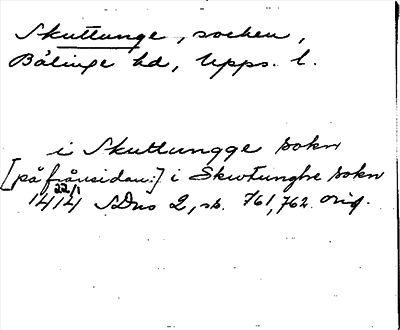 Skuttunge, socken,
Bälinge hd, Upps. l.
i Skuttungge sokn
[på frånsidan:] i Skwtunghe sokn
22/1
1414 SDns 2, s. 761, 762. orig.